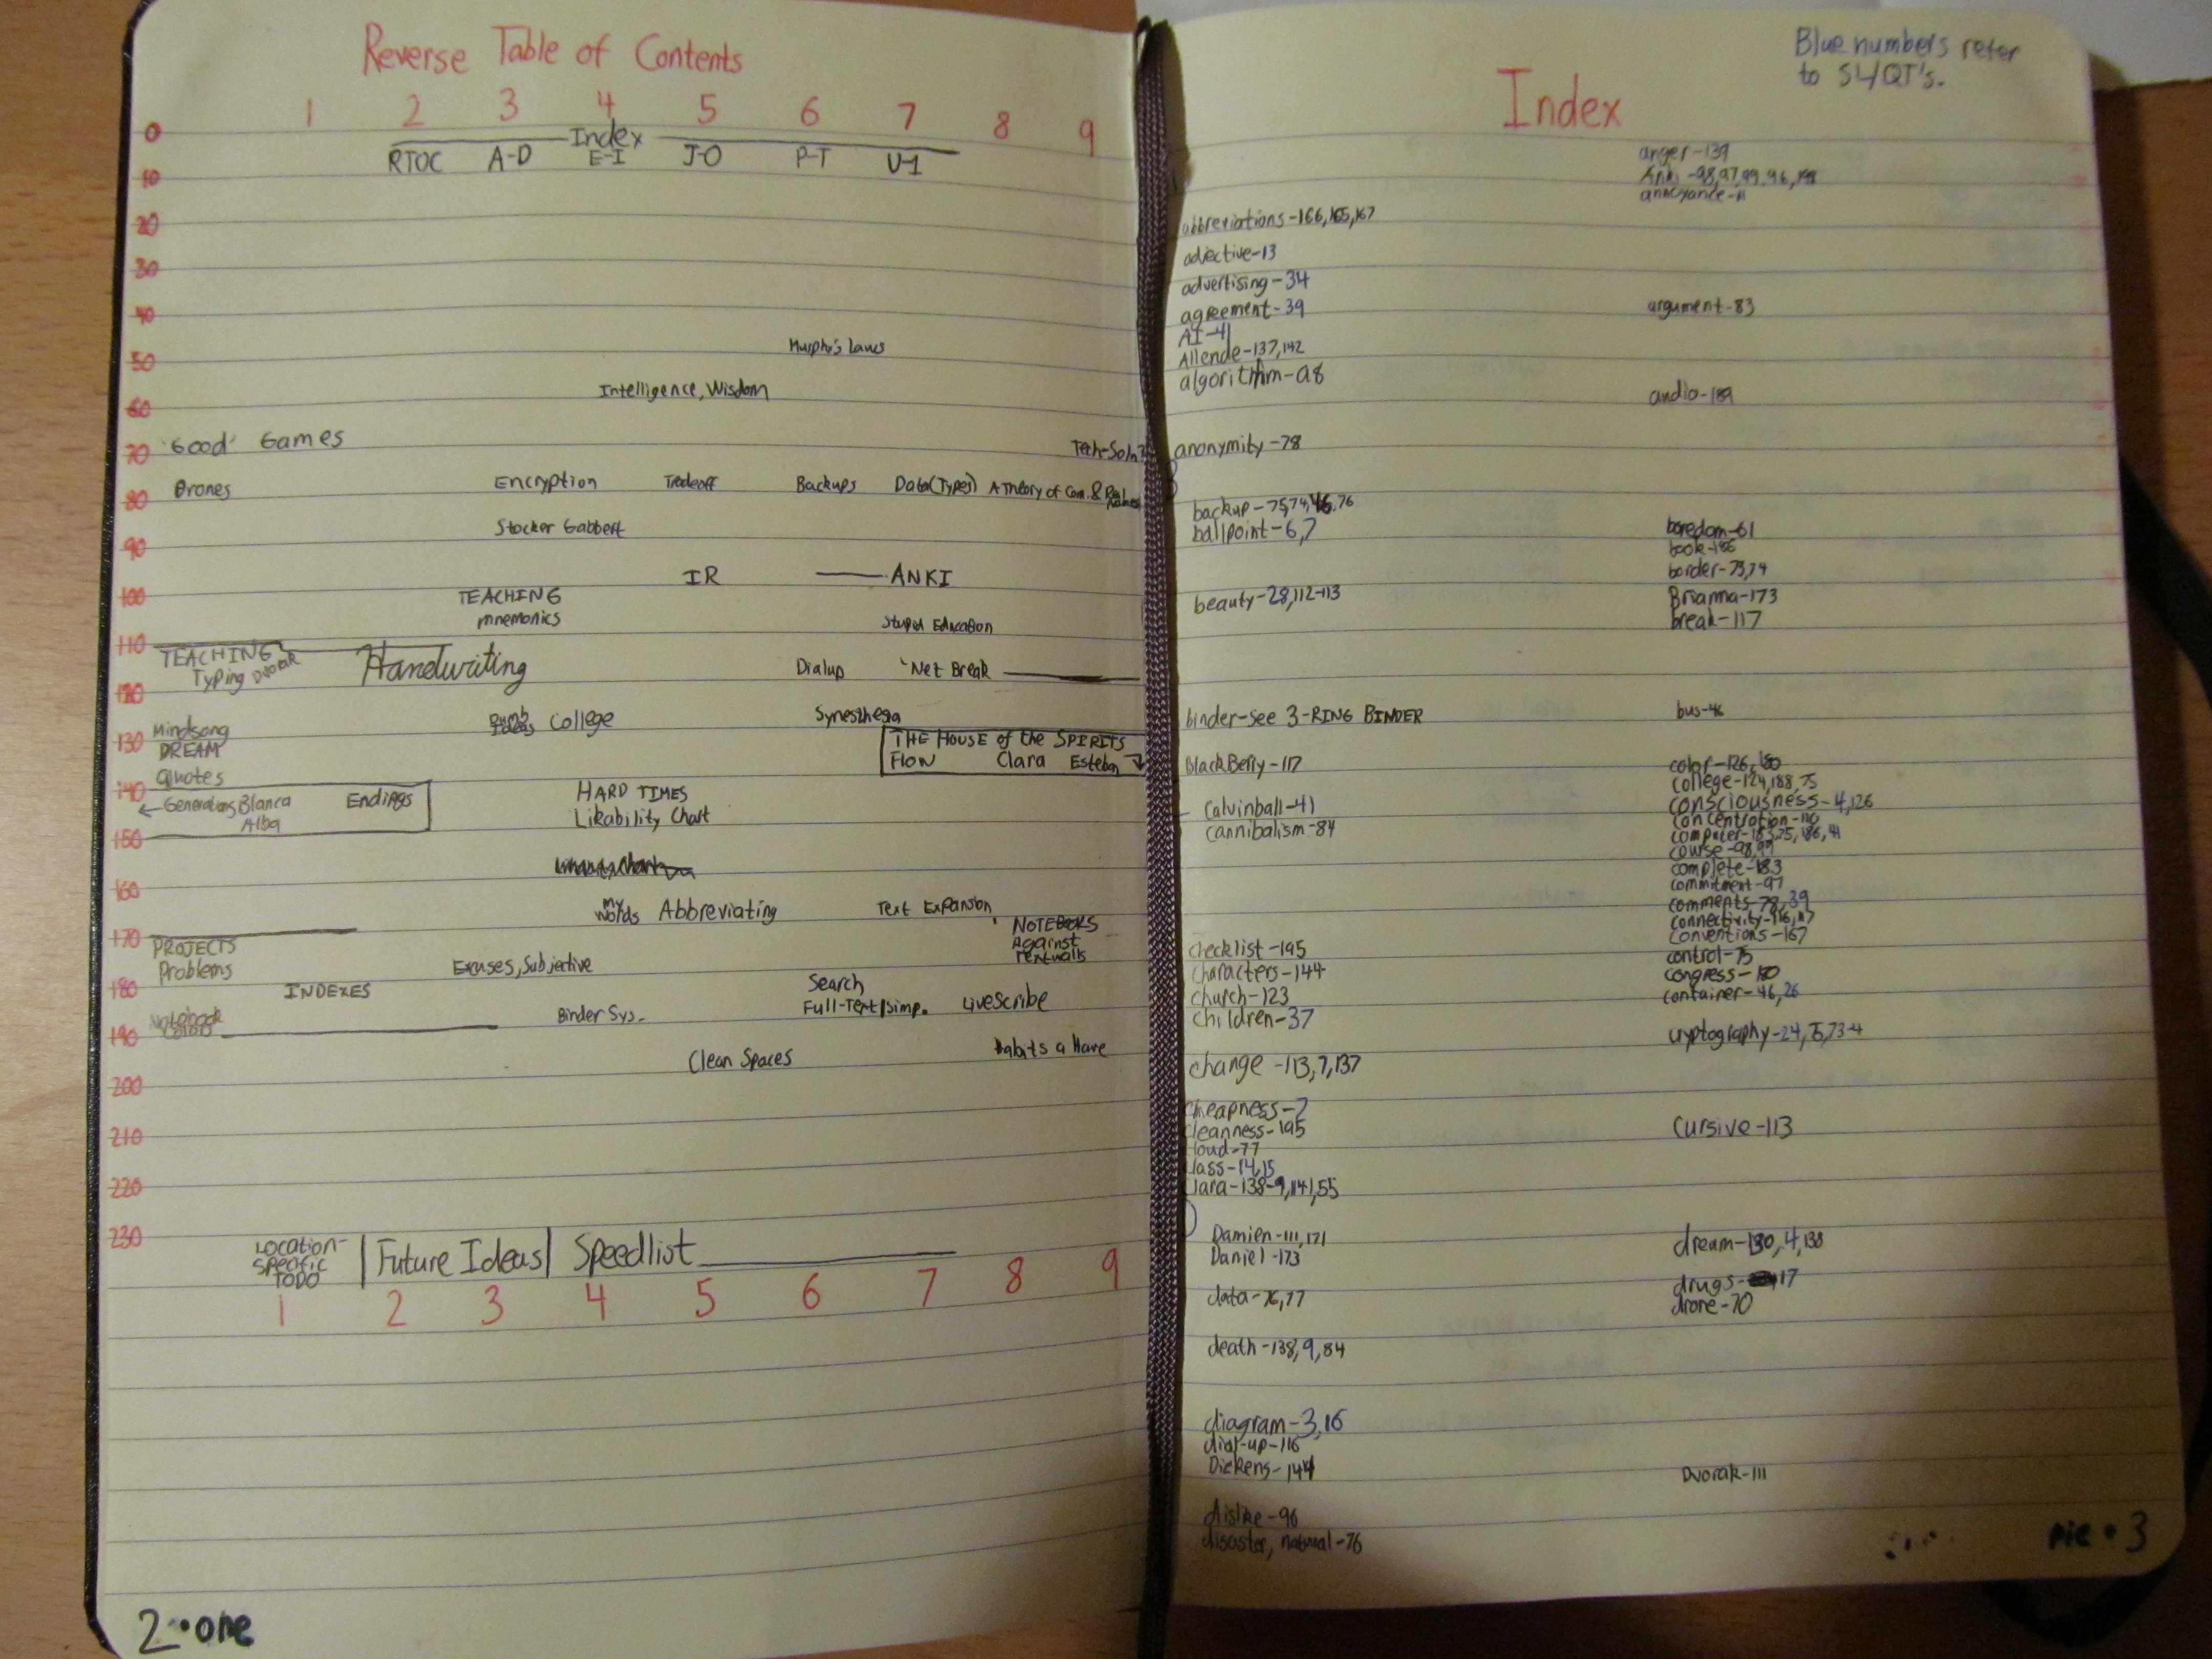 Reverse Table of Contents
1 2 3 4 5 6 7 8 9
0 Index
RTOC A-D E-I J-O P-T U-1
10
20
30
40
Murphy's Laws
50
Intelligence, Wisdom
60
'Good' Games Tech-Soln?
70
Drones Encryption Tradeoff Backups Data(Types) A Theory of Com. & Real Names
80
Stocker Gabbert
90
IR ANKI
100 TEACHING
mnemonics Stupid Education
110
TEACHING Handwriting
Typing Dvorak Dialup 'Net Break
120
Mindsong Dumb Ideas College Synesthesia
130 DREAM THE HOUSE of the SPIRITS
Quotes Flow Clara Esteban
140 HARD TIMES
← Generations Blanca Endings
Alba Likability Chart
150
160
My Words Abbreviating Text Expansion
NOTEBOOKS
170 PROJECTS Against
Problems Excuses, Subjective textwalls
180 INDEXES Search
Notebook Binder Sys. Full-Text/simp. LiveScribe
190
Clean Spaces habits a Have
200
210
220
230
LOCATION-SPECIFIC TODO Future Ideas Speedlist
1 2 3 4 5 6 7 8 9
2•one
Blue numbers refer
to SL/QT's.
Index
abbreviations-166,165,167
adjective-13
advertising-34
agreement-39
AI-41
Allende-137,142
algorithm-98
anonymity-78
backup-75,74,46,76
ballpoint-6,7
beauty-28,112-113
binder-see 3-RING BINDER
BlackBerry-117
Calvinball-41
cannibalism-84
checklist-195
characters-144
church-123
children-37
change-113,7,137
cheapness-7
cleanness-195
cloud-77
class-14,15
Clara-138-9,141,55
Damien-111,171
Daniel-173
data-76,77
death-138,9,84
diagram-3,16
dial-up-116
Dickens-144
dislike-96
disaster, natural-76
anger-139
Anki-98,97,99,96,
annoyance-11
argument-83
audio-189
boredom-61
book-186
border-73,74
Brianna-173
break-117
bus-46
color-126,180
college-124,188,75
consciousness-4,126
concentration-110
computer-183,75,186,41
course-98,99
complete-183
commitment-97
comments-78,39
connectivity-116,117
conventions-167
control-75
congress-180
container-46,26
cryptography-24,5,73-4
cursive-113
dream-130,4,138
drugs-17
drone-70
Dvorak-111
pie•3